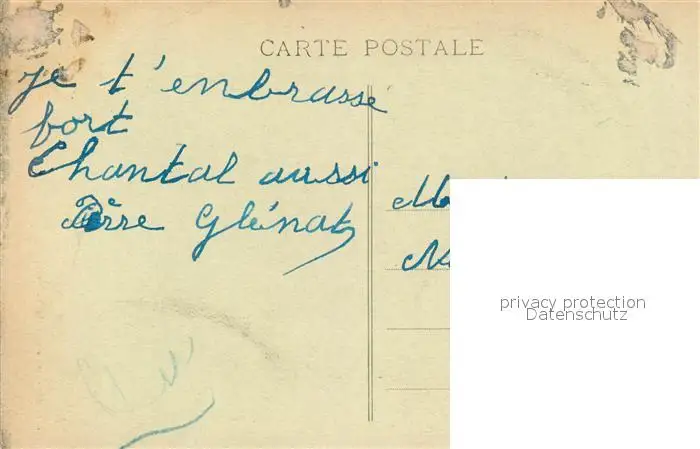 CARTE POSTALE
je t'enbrasse
fort
Chantal aussi
Glénat
privacy protection
Datenschutz